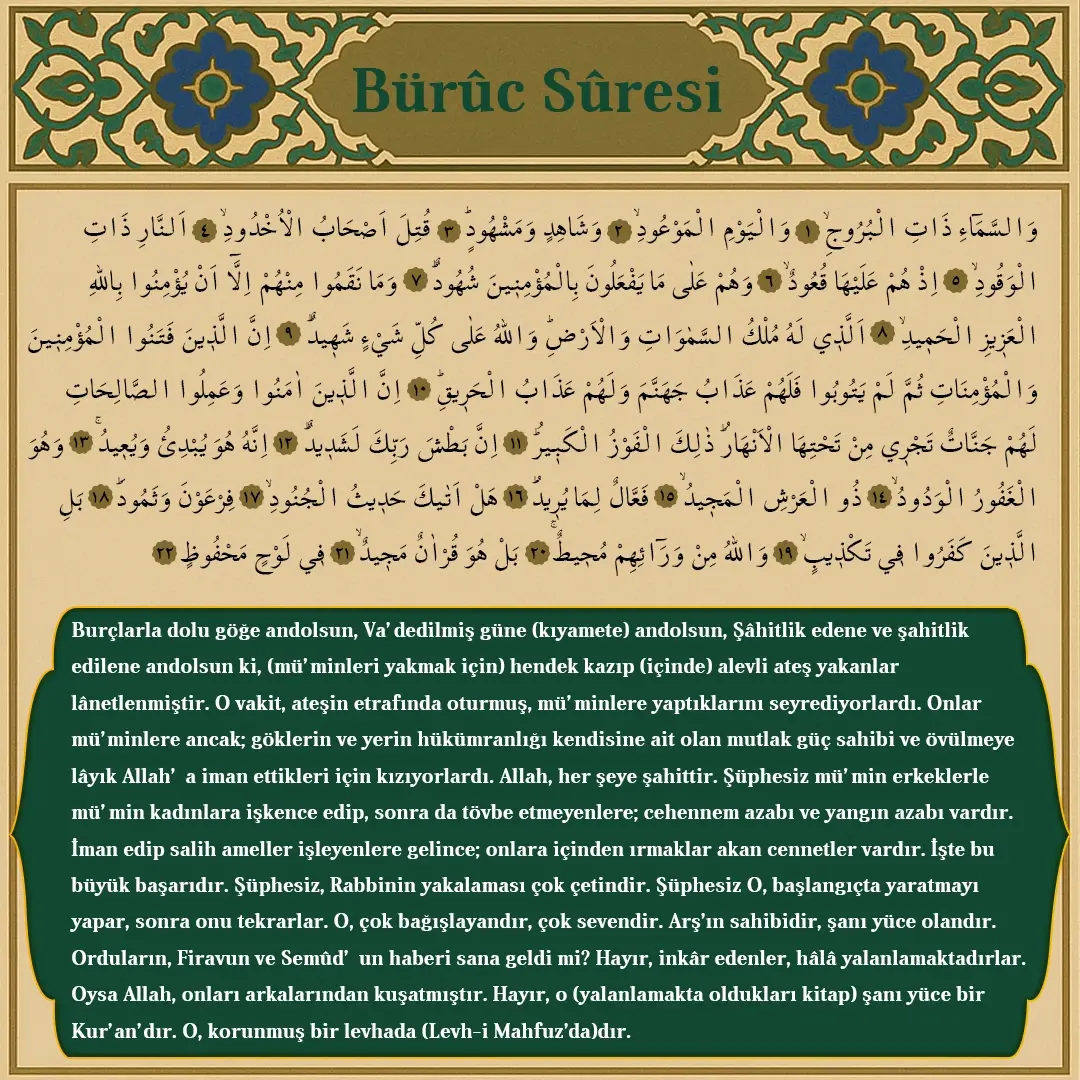 Bürûc Sûresi
وَالسَّمَٓاءِ ذَاتِ الْبُرُوجِۙ ﴿١﴾ وَالْيَوْمِ الْمَوْعُودِۙ ﴿٢﴾ وَشَاهِدٍ وَمَشْهُودٍۜ ﴿٣﴾ قُتِلَ اَصْحَابُ الْاُخْدُودِۙ ﴿٤﴾ اَلنَّارِ ذَاتِ
الْوَقُودِۙ ﴿٥﴾ اِذْ هُمْ عَلَيْهَا قُعُودٌۙ ﴿٦﴾ وَهُمْ عَلٰى مَا يَفْعَلُونَ بِالْمُؤْمِن۪ينَ شُهُودٌۜ ﴿٧﴾ وَمَا نَقَمُوا مِنْهُمْ اِلَّٓا اَنْ يُؤْمِنُوا بِاللّٰهِ
الْعَز۪يزِ الْحَم۪يدِۙ ﴿٨﴾ اَلَّذ۪ي لَهُ مُلْكُ السَّمٰوَاتِ وَالْاَرْضِۜ وَاللّٰهُ عَلٰى كُلِّ شَيْءٍ شَه۪يدٌۜ ﴿٩﴾ اِنَّ الَّذ۪ينَ فَتَنُوا الْمُؤْمِن۪ينَ
وَالْمُؤْمِنَاتِ ثُمَّ لَمْ يَتُوبُوا فَلَهُمْ عَذَابُ جَهَنَّمَ وَلَهُمْ عَذَابُ الْحَر۪يقِۜ ﴿١٠﴾ اِنَّ الَّذ۪ينَ اٰمَنُوا وَعَمِلُوا الصَّالِحَاتِ
لَهُمْ جَنَّاتٌ تَجْر۪ي مِنْ تَحْتِهَا الْاَنْهَارُۜ ذٰلِكَ الْفَوْزُ الْكَب۪يرُۜ ﴿١١﴾ اِنَّ بَطْشَ رَبِّكَ لَشَد۪يدٌۜ ﴿١٢﴾ اِنَّهُ هُوَ يُبْدِئُ وَيُع۪يدُۚ ﴿١٣﴾ وَهُوَ
الْغَفُورُ الْوَدُودُۙ ﴿١٤﴾ ذُو الْعَرْشِ الْمَج۪يدُۙ ﴿١٥﴾ فَعَّالٌ لِمَا يُر۪يدُۜ ﴿١٦﴾ هَلْ اَتٰيكَ حَد۪يثُ الْجُنُودِۙ ﴿١٧﴾ فِرْعَوْنَ وَثَمُودَۜ ﴿١٨﴾ بَلِ
الَّذ۪ينَ كَفَرُوا ف۪ي تَكْذ۪يبٍۙ ﴿١٩﴾ وَاللّٰهُ مِنْ وَرَٓائِهِمْ مُح۪يطٌۚ ﴿٢٠﴾ بَلْ هُوَ قُرْاٰنٌ مَج۪يدٌۙ ﴿٢١﴾ ف۪ي لَوْحٍ مَحْفُوظٍ ﴿٢٢﴾
Burçlarla dolu göğe andolsun, Va’ dedilmiş güne (kıyamete) andolsun, Şâhitlik edene ve şahitlik
edilene andolsun ki, (mü’ minleri yakmak için) hendek kazıp (içinde) alevli ateş yakanlar
lânetlenmiştir. O vakit, ateşin etrafında oturmuş, mü’ minlere yaptıklarını seyrediyorlardı. Onlar
mü’ minlere ancak; göklerin ve yerin hükümranlığı kendisine ait olan mutlak güç sahibi ve övülmeye
lâyık Allah’ a iman ettikleri için kızıyorlardı. Allah, her şeye şahittir. Şüphesiz mü’ min erkeklerle
mü’ min kadınlara işkence edip, sonra da tövbe etmeyenlere; cehennem azabı ve yangın azabı vardır.
İman edip salih ameller işleyenlere gelince; onlara içinden ırmaklar akan cennetler vardır. İşte bu
büyük başarıdır. Şüphesiz, Rabbinin yakalaması çok çetindir. Şüphesiz O, başlangıçta yaratmayı
yapar, sonra onu tekrarlar. O, çok bağışlayandır, çok sevendir. Arş’ın sahibidir, şanı yüce olandır.
Orduların, Firavun ve Semûd’ un haberi sana geldi mi? Hayır, inkâr edenler, hâlâ yalanlamaktadırlar.
Oysa Allah, onları arkalarından kuşatmıştır. Hayır, o (yalanlamakta oldukları kitap) şanı yüce bir
Kur’an’dır. O, korunmuş bir levhada (Levh-i Mahfuz’da)dır.